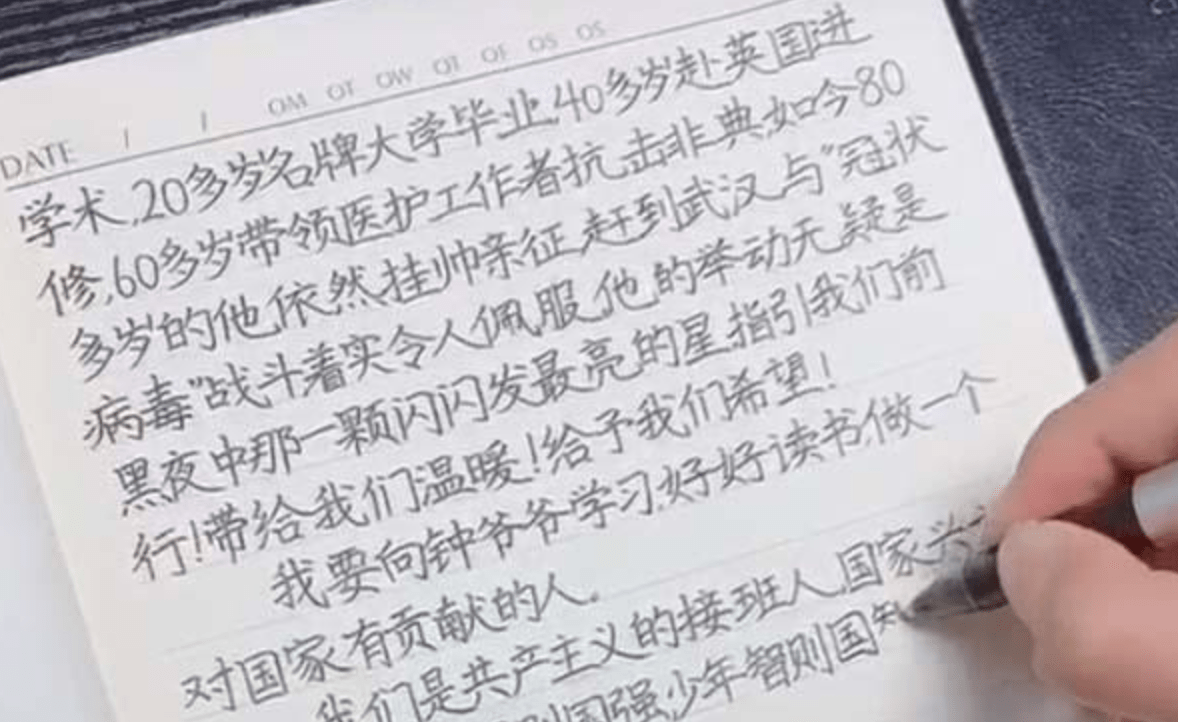 DATE / / OM OT OW OT OF OS OS
学术,20多岁名牌大学毕业,40多岁赴英国进
修,60多岁带领医护工作者抗击非典,如今80
多岁的他,依然挂帅亲征,赶到武汉,与"冠状
病毒"战斗着实令人佩服,他的举动无疑是
黑夜中那一颗闪闪发最亮的星,指引我们前
行!带给我们温暖!给予我们希望!
我要向钟爷爷学习,好好读书,做一个
对国家有贡献的人。
我们是共产主义的接班人,国家兴
国强,少年智则国